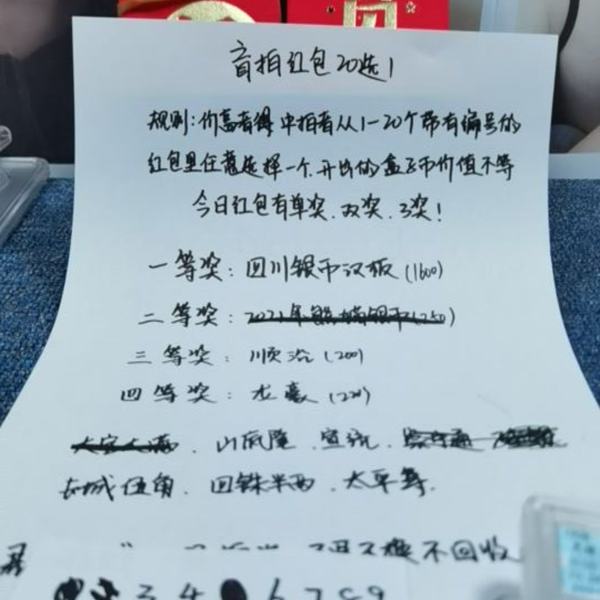 盲拍红包20选1
规则:价高者得 中拍者从1-20个带有编号的
红包里任意选择一个.开出的盒子币价值不等
今日红包有单奖.双奖.3奖!
一等奖:四川银币汉板(1600)
二等奖:2021年熊猫银币(250)
三等奖:顺治(200)
四等奖:龙毫(220)
山底隆.宣统.
长城伍角.四铢半两.太平等.
不回收
3 4 6 7 8 9